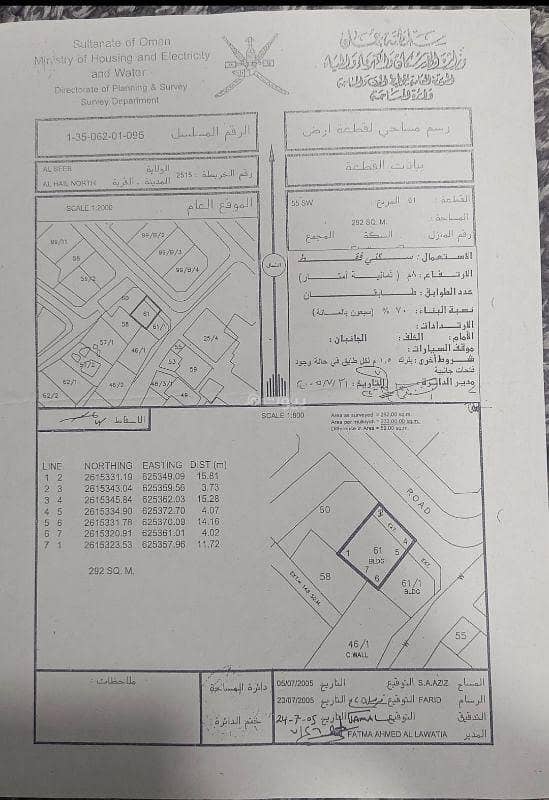 Sultanate of Oman
Ministry of Housing and Electricity
and Water
Directorate of Planning & Survey
Survey Department
سلطنة عمان
وزارة الإسكان والكهرباء والمياه
دائرة المساحة
1-35-062-01-095 الرقم المسلسل
رسم مساحي لقطعة ارض
AL SEEB الولاية
AL HAIL NORTH المدينة . القرية
رقم الخريطة : 2515
بيانات القطعة
SCALE 1:2000 الموقع العام
القطعة : 61 المربع 55 SW
المساحة : 292 SQ. M.
رقم المنزل السكة المجمع
الاستعمال : سكني فقط
الارتفاع : ٨م ( ثمانية أمتار )
عدد الطوابق : طابقان
نسبة البناء : ٧٠ % ( سبعون بالمائة )
الارتدادات :
الأمام : الخلف : الجانبان :
موقف السيارات :
شروط أخرى : يترك ١,٥ م لكل طابق في حالة وجود
فتحات جانبية
مدير الدائرة : التاريخ :
99/11
99/8/2
56
99/8/3
55/2
99/8/4
60
61
58
61/1
57/1
46/1
25/4
53
62/1
59
46/2
46/3/1
52/2
52/1
48
الشمال
الاسقاط
SCALE 1:500
Area as surveyed = 292.00 sq.m.
Area per mulkiyah = 233.00 sq.m.
Difference in Area = 59.00 sq.m.
LINE NORTHING EASTING DIST (m)
1 2 2615331.19 625349.09 15.81
2 3 2615343.04 625359.56 3.73
3 4 2615345.84 625362.03 15.28
4 5 2615334.90 625372.70 4.07
5 6 2615331.78 625370.09 14.16
6 7 2615320.91 625361.01 4.02
7 1 2615323.53 625357.96 11.72
292 SQ. M.
ROAD
60
3
EXT
4
1
61
BLDG
5
EXT
7
6
58
61/1
BLDG
46/1
C.WALL
55
ملاحظات :
دائرة المساحة
ختم الدائرة
المساح S.A.AZIZ التوقيع التاريخ 05/07/2005
الرسام FARID التوقيع التاريخ 23/07/2005
التدقيق JAMAL التوقيع التاريخ 24-7-05
المدير FATMA AHMED AL LAWATIA